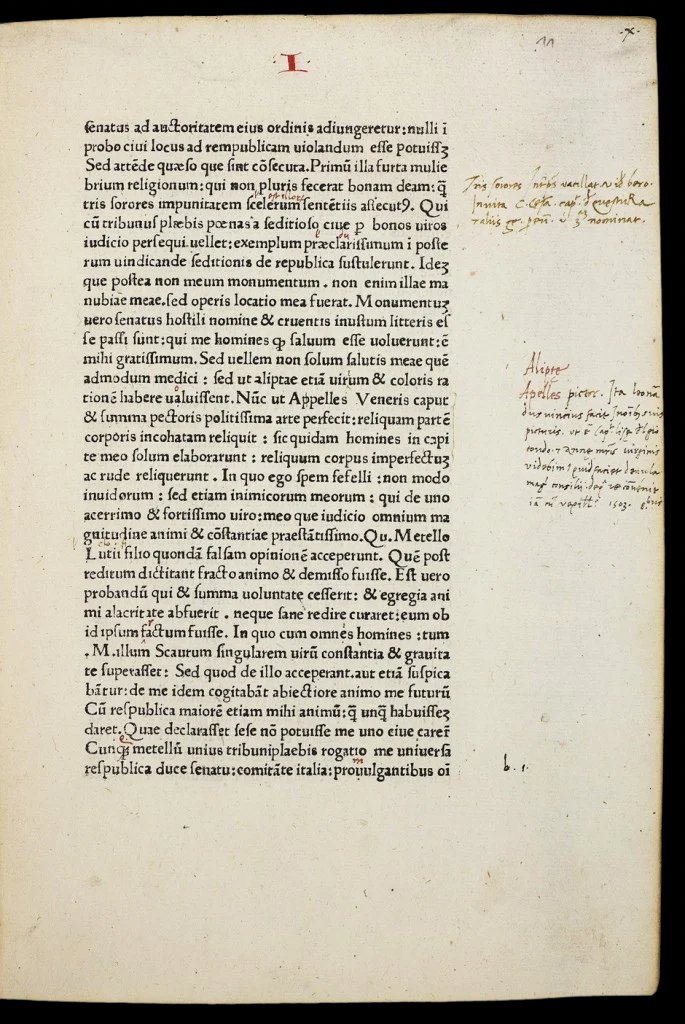 .x.
11
.I.
senatus ad auctoritatem eius ordinis adiungeretur:nulli ī
probo ciui locus ad rempublicam uiolandum esse potuissꝫ
Sed attēde quæso que sint cōsecuta.Primū illa furta mulie
brium religionum:qui non pluris fecerat bonam deam:q̄
tris sorores impunitatem scelerum sentētiis assecutꝰ. Qui
cū tribunus plæbis pœnas a seditioso ciue ꝑ bonos uiros
iudicio persequi uellet:exemplum præclarissimum ī poste
rum uindicande seditionis de republica sustulerunt. Ideꝫ
que postea non meum monumentum . non enim illae ma
nubiae meae.sed operis locatio mea fuerat. Monumentuꝫ
uero senatus hostili nomine & cruentis inustum litteris es
se passi sunt:qui me homines ꝙ saluum esse uoluerunt:ē
mihi gratissimum. Sed uellem non solum salutis meae quē
admodum medici : sed ut aliptae etiā uirum & coloris ra
tionē habere ualuissent. Nūc ut Appelles Veneris caput
& summa pectoris politissima arte perfecit:reliquam partē
corporis incohatam reliquit : sic quidam homines in capi
te meo solum elaborarunt : reliquum corpus imperfectuꝫ
ac rude reliquerunt. In quo ego spem fefelli:non modo
inuidorum : sed etiam inimicorum meorum : qui de uno
acerrimo & fortissimo uiro:meo que iudicio omnium ma
gnitudine animi & cōstantiae praestātissimo.Qu. Metello
Lutii filio quondā falsam opinionē acceperunt. Quē post
reditum dictitant fracto animo & demisso fuisse. Est uero
probandū qui & summa uoluntate cesserit: & egregia ani
mi alacritate abfuerit . neque sane redire curaret:eum ob
id ipsum factum fuisse. In quo cum omnes homines : tum
.M.illum Scaurum singularem uirū constantia & grauita
te superasset: Sed quod de illo acceperant.aut etiā suspica
bātur:de me idem cogitabāt abiectiore animo me futurū
Cū respublica maiorē etiam mihi animū:q̄ unq̄ habuissеꝫ
daret.Quae declarasset sese nō potuisse me uno ciue carer̄
Cunqꝫ metellū unius tribuniplaebis rogatio me uniuersa
respublica duce senatu:comitāte italia:prouulgantibus oī
Tris sorores
nominat.
Alipte
Apelles pictor. Ita Leona
dus uincius facit in oībus suis
picturis. ut ē caput lise del gio
condo. & anne matris uirginis
uidebimus quid faciet de aula
magni consilii. de qua re conuenit
iā cum uexillifero. 1503. 8bris
b.1.